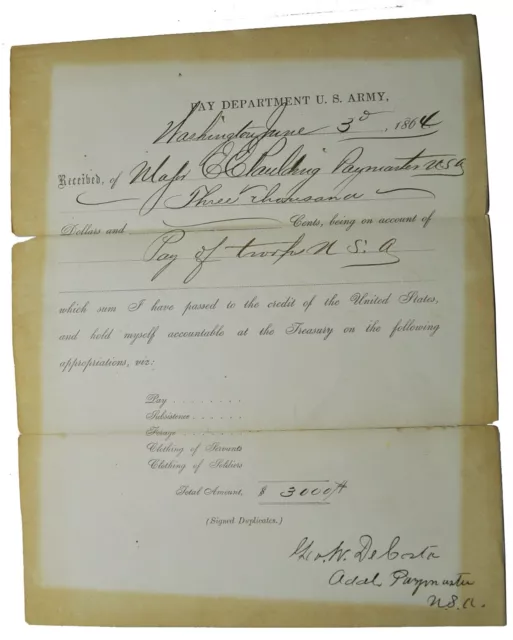 PAY DEPARTMENT U. S. ARMY,
Washington June 3d, 1864
Received, of Majr E C Paulding Paymaster U S A
Three thousand
Dollars and Cents, being on account of
Pay of troops U. S. A
which sum I have passed to the credit of the United States,
and hold myself accountable at the Treasury on the following
appropriations, viz:
Pay . . . . . . . .
Subsistence . . . . . .
Forage . . . . . . .
Clothing of Servants
Clothing of Soldiers
Total Amount, $ 3000
(Signed Duplicates.)
Geo. W. DeCosta
Addl. Paymaster
U.S.A.